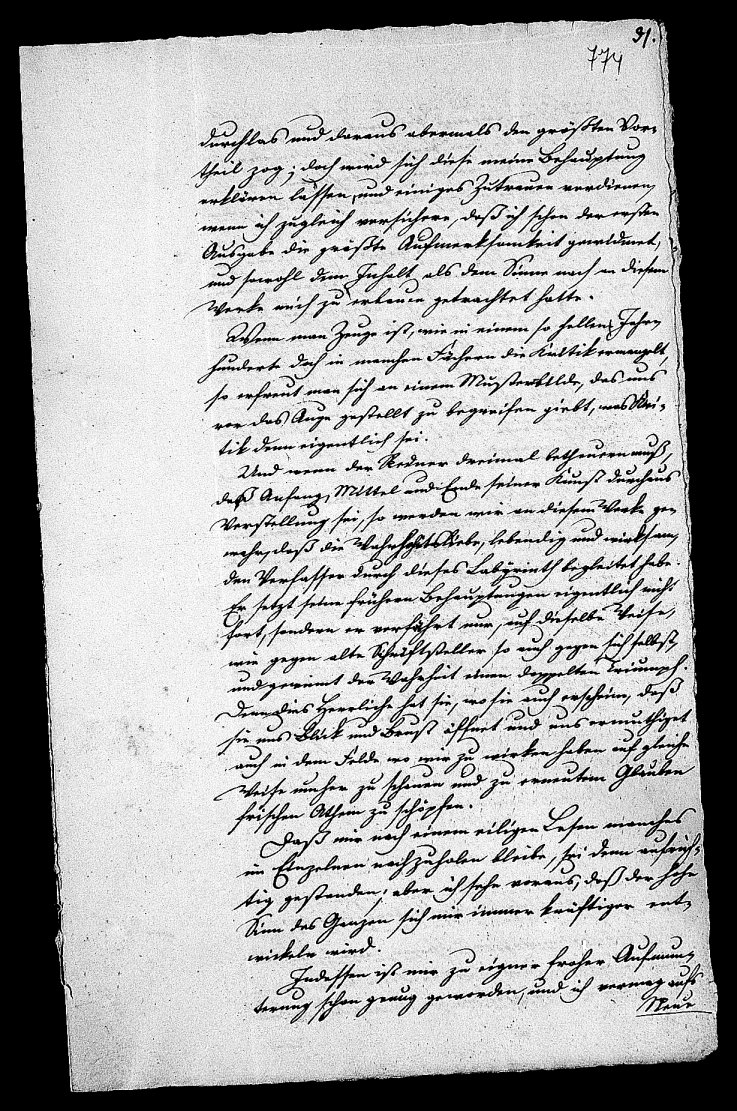 91.
774
durchlas und daraus abermals den größten Vor-
theil zog; doch wird sich diese meine Behauptung
erklären lassen, und einiges Zutrauen verdienen,
wenn ich zugleich versichere, daß ich schon der ersten
Ausgabe die größte Aufmerksamkeit gewidmet,
und sowohl dem Inhalt als dem Sinne nach in diesem
Werke mich zu erbauen getrachtet hatte.
Wenn man Zeuge ist, wie in einem so hellen Jahr-
hunderte doch in manchen Fächern die Kritik ermangelt,
so erfreut man sich an einem Musterbilde, das uns
vor das Auge gestellt zu begreifen giebt, was Kri-
tik denn eigentlich sei.
Und wenn der Redner dreimal betheuern muß,
daß Anfang, Mittel und Ende seiner Kunst durchaus
Verstellung sei, so werden wir an diesem Werke ge-
wahr, daß die Wahrheitsliebe, lebendig und wirksam,
den Verfasser durch dieses Labyrinth begleitet habe.
Er setzt seine frühern Behauptungen eigentlich nicht
fort, sondern er verfährt nur, auf dieselbe Weise,
wie gegen alte Schriftsteller so auch gegen sich selbst,
und gewinnt der Wahrheit einen doppelten Triumph.
Denn dies Herrliche hat sie, wo sie auch erscheine, daß
sie uns Blick und Brust öffnet und uns ermuthiget
auch in dem Felde wo wir zu wirken haben auf gleiche
Weise umher zu schauen und zu erneutem Glauben
frischen Athem zu schöpfen.
Daß mir nach einem eiligen Lesen manches
im Einzelnen nachzuholen bleibe, sei denn aufrich-
tig gestanden; aber ich sehe voraus, daß der hohe
Sinn des Ganzen sich mir immer kräftiger ent-
wickeln wird.
Indessen ist mir zu eigner froher Aufmun-
terung schon genug geworden, und ich vermag aufs
Neue